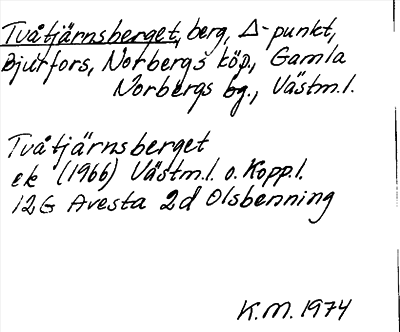 Tvåtjärnsberget, berg, Δ-punkt,
Bjurfors, Norbergs köp., Gamla
Norbergs bg., Västm.l.
Tvåtjärnsberget
ek (1966) Västm.l. o. Kopp.l.
12G Avesta 2d Olsbenning
K.M. 1974